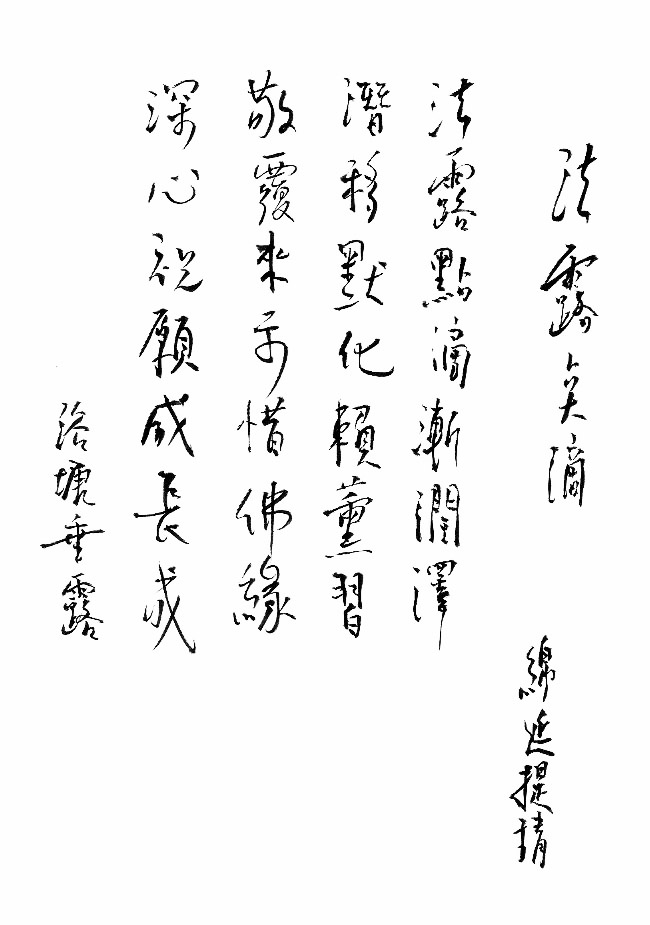 法露点滴
綿延提請
法露點滴漸潤澤
潛移默化賴薰習
敬覆来示惜佛緣
深心祝願成長成
浴塘垂露